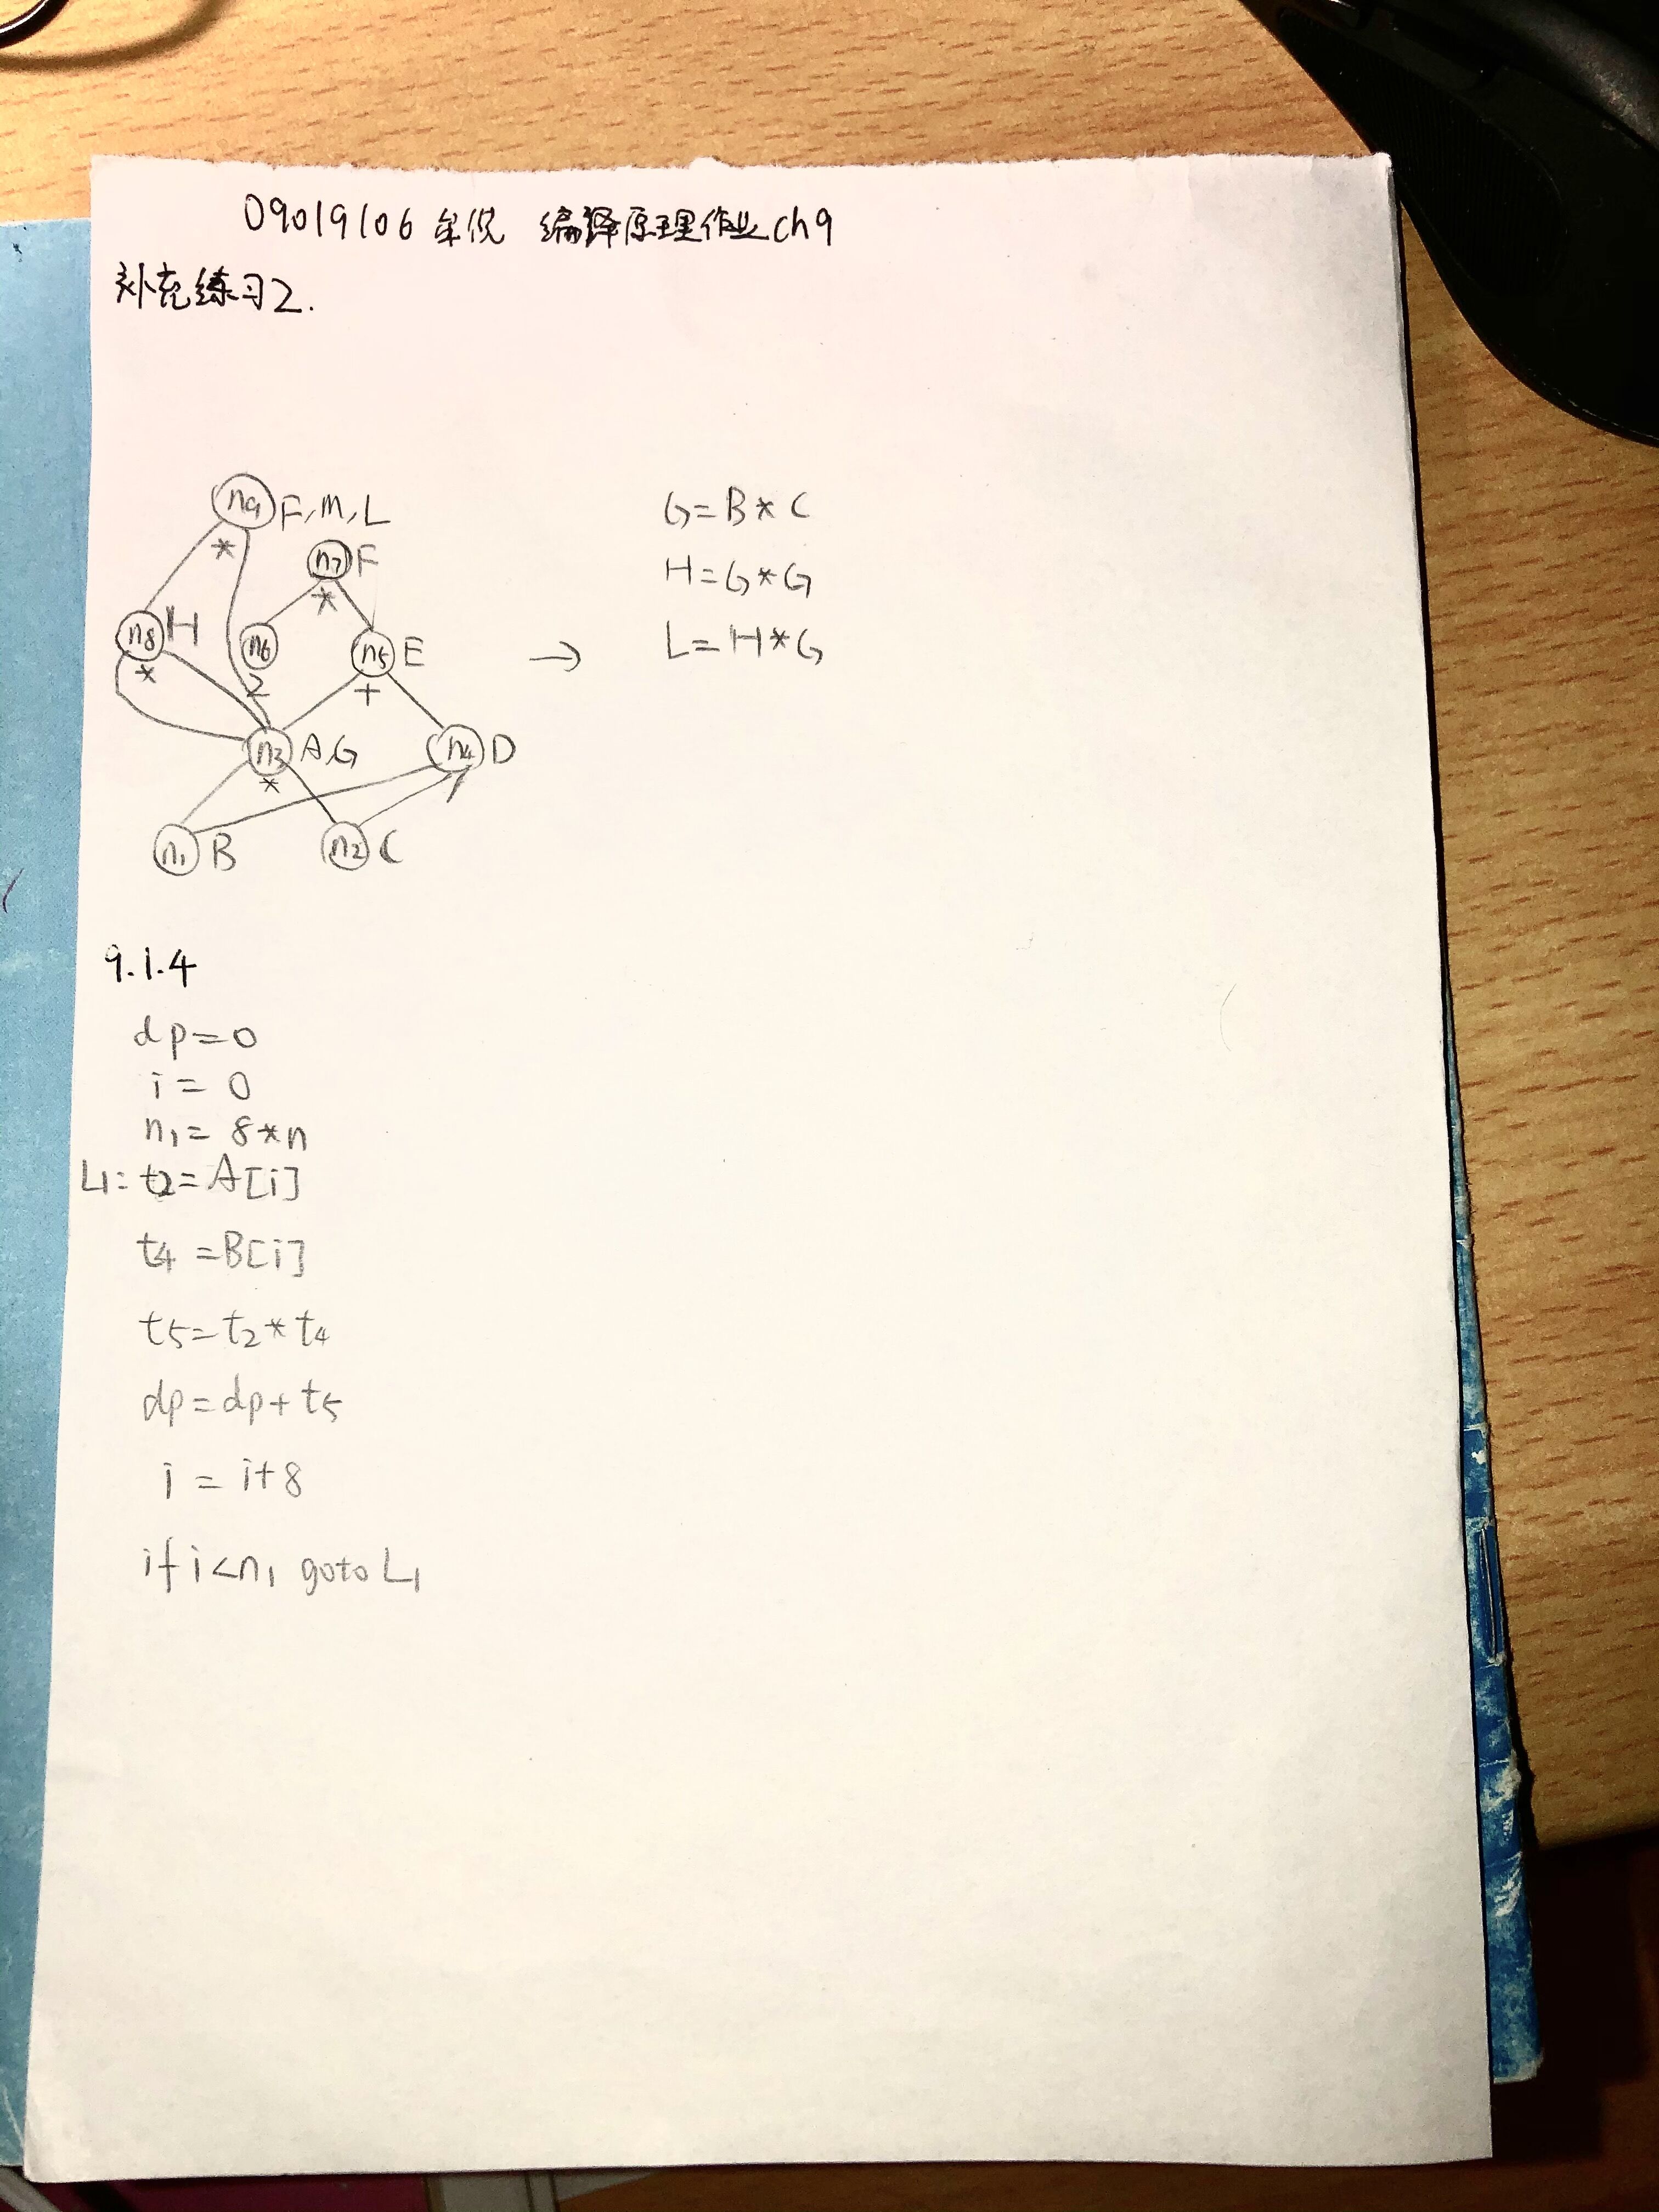 09019106 牟倪 编译原理作业ch9
补充练习2.
n9 F,M,L
*
n7 F
*
n8 H
*
n6
2
n5 E
+
n3 A,G
*
n4 D
/
n1 B
n2 C
→
G=B*C
H=G*G
L=H*G
9.1.4
dp=0
i=0
n1=8*n
L1: t2=A[i]
t4=B[i]
t5=t2*t4
dp=dp+t5
i=i+8
if i<n1 goto L1